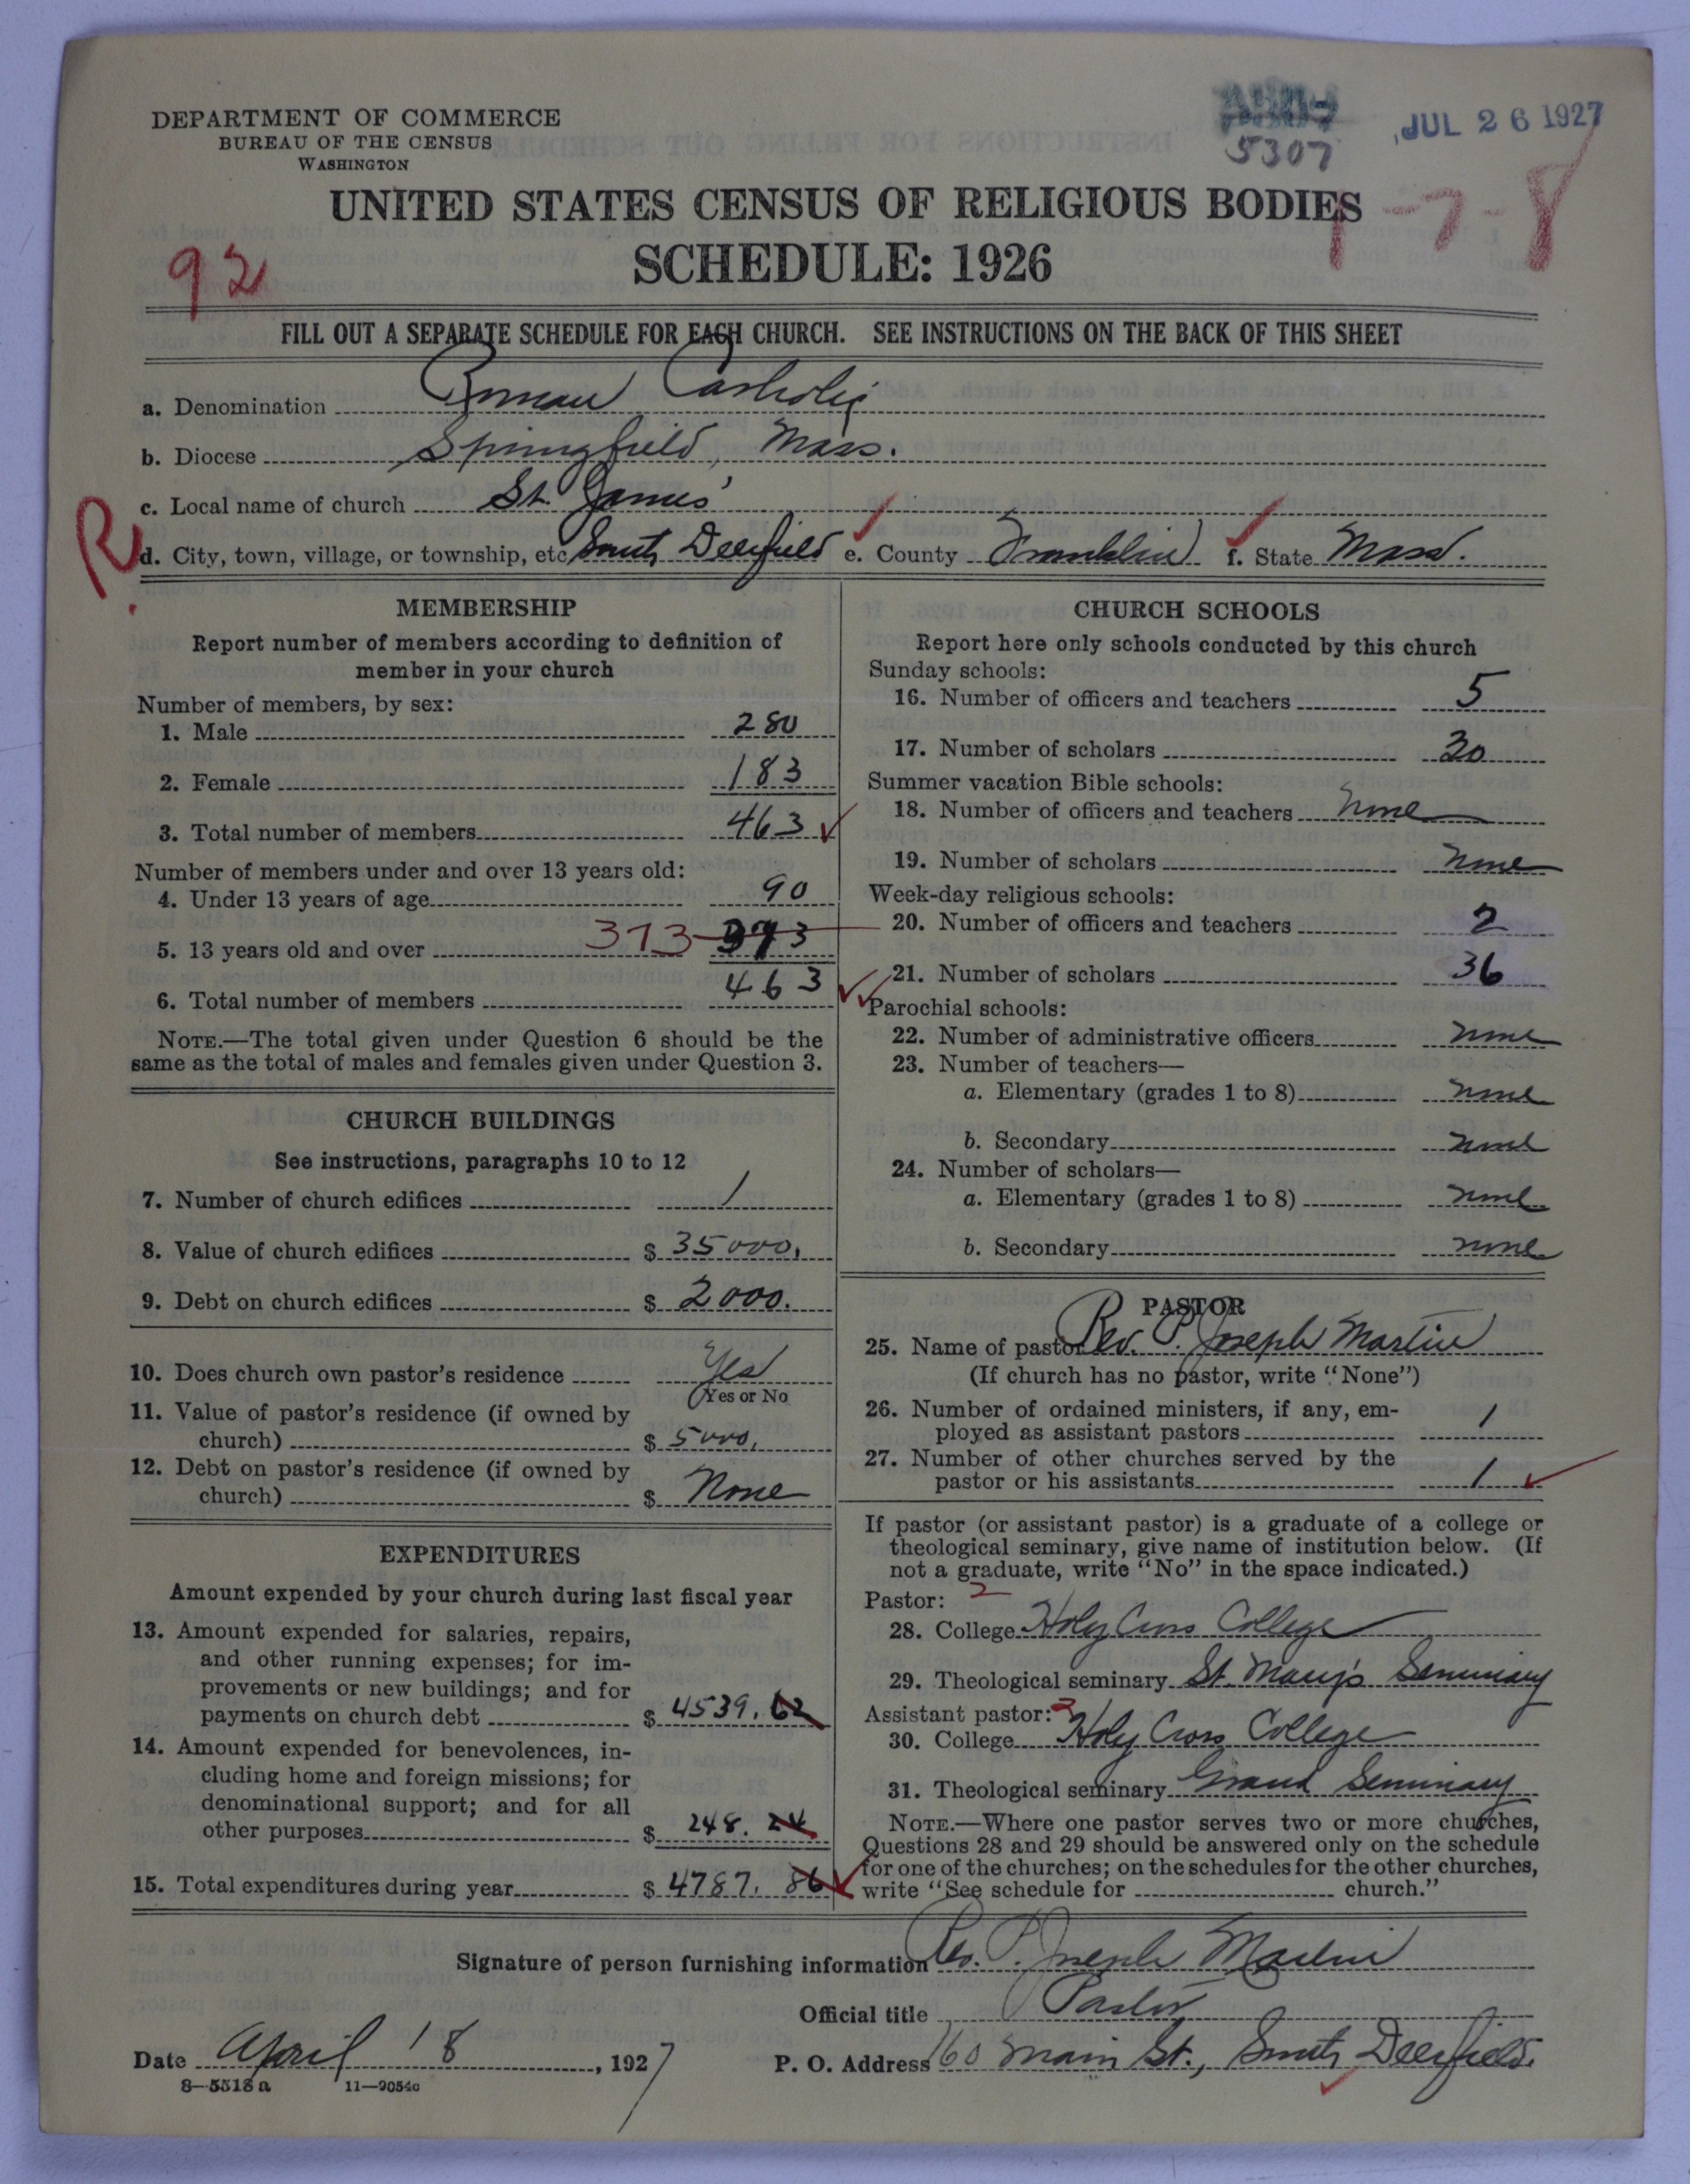 DEPARTMENT OF COMMERCE
BUREAU OF THE CENSUS
WASHINGTON
5307
JUL 26 1927
UNITED STATES CENSUS OF RELIGIOUS BODIES
1-7-8
92
SCHEDULE: 1926
FILL OUT A SEPARATE SCHEDULE FOR EACH CHURCH. SEE INSTRUCTIONS ON THE BACK OF THIS SHEET
a. Denomination Roman Catholic
b. Diocese Springfield, Mass.
c. Local name of church St. James'
R
d. City, town, village, or township, etc South Deerfield e. County Franklin f. State Mass.
MEMBERSHIP
Report number of members according to definition of
member in your church
Number of members, by sex:
1. Male 280
2. Female 183
3. Total number of members 463
Number of members under and over 13 years old:
4. Under 13 years of age 90
5. 13 years old and over 373 373
6. Total number of members 463
NOTE.—The total given under Question 6 should be the
same as the total of males and females given under Question 3.
CHURCH BUILDINGS
See instructions, paragraphs 10 to 12
7. Number of church edifices 1
8. Value of church edifices $ 35000.
9. Debt on church edifices $ 2000.
10. Does church own pastor's residence Yes
(Yes or No
11. Value of pastor's residence (if owned by
church) $ 5000.
12. Debt on pastor's residence (if owned by
church) $ None
EXPENDITURES
Amount expended by your church during last fiscal year
13. Amount expended for salaries, repairs,
and other running expenses; for im-
provements or new buildings; and for
payments on church debt $ 4539.62
14. Amount expended for benevolences, in-
cluding home and foreign missions; for
denominational support; and for all
other purposes $ 248.24
15. Total expenditures during year $ 4787.86
CHURCH SCHOOLS
Report here only schools conducted by this church
Sunday schools:
16. Number of officers and teachers 5
17. Number of scholars 30
Summer vacation Bible schools:
18. Number of officers and teachers none
19. Number of scholars none
Week-day religious schools:
20. Number of officers and teachers 2
21. Number of scholars 36
Parochial schools:
22. Number of administrative officers none
23. Number of teachers—
a. Elementary (grades 1 to 8) none
b. Secondary none
24. Number of scholars—
a. Elementary (grades 1 to 8) none
b. Secondary none
PASTOR
25. Name of pastor Rev. P. Joseph Martin
(If church has no pastor, write "None")
26. Number of ordained ministers, if any, em-
ployed as assistant pastors 1
27. Number of other churches served by the
pastor or his assistants 1
If pastor (or assistant pastor) is a graduate of a college or
theological seminary, give name of institution below. (If
not a graduate, write "No" in the space indicated.)
Pastor: 2
28. College Holy Cross College
29. Theological seminary St. Mary's Seminary
Assistant pastor: 3
30. College Holy Cross College
31. Theological seminary Grand Seminary
NOTE.—Where one pastor serves two or more churches,
Questions 28 and 29 should be answered only on the schedule
for one of the churches; on the schedules for the other churches,
write "See schedule for church."
Signature of person furnishing information Rev. P. Joseph Martin
Official title Pastor
Date April 18, 1927
P. O. Address 160 Main St., South Deerfield.
8—5518 a 11—9054c